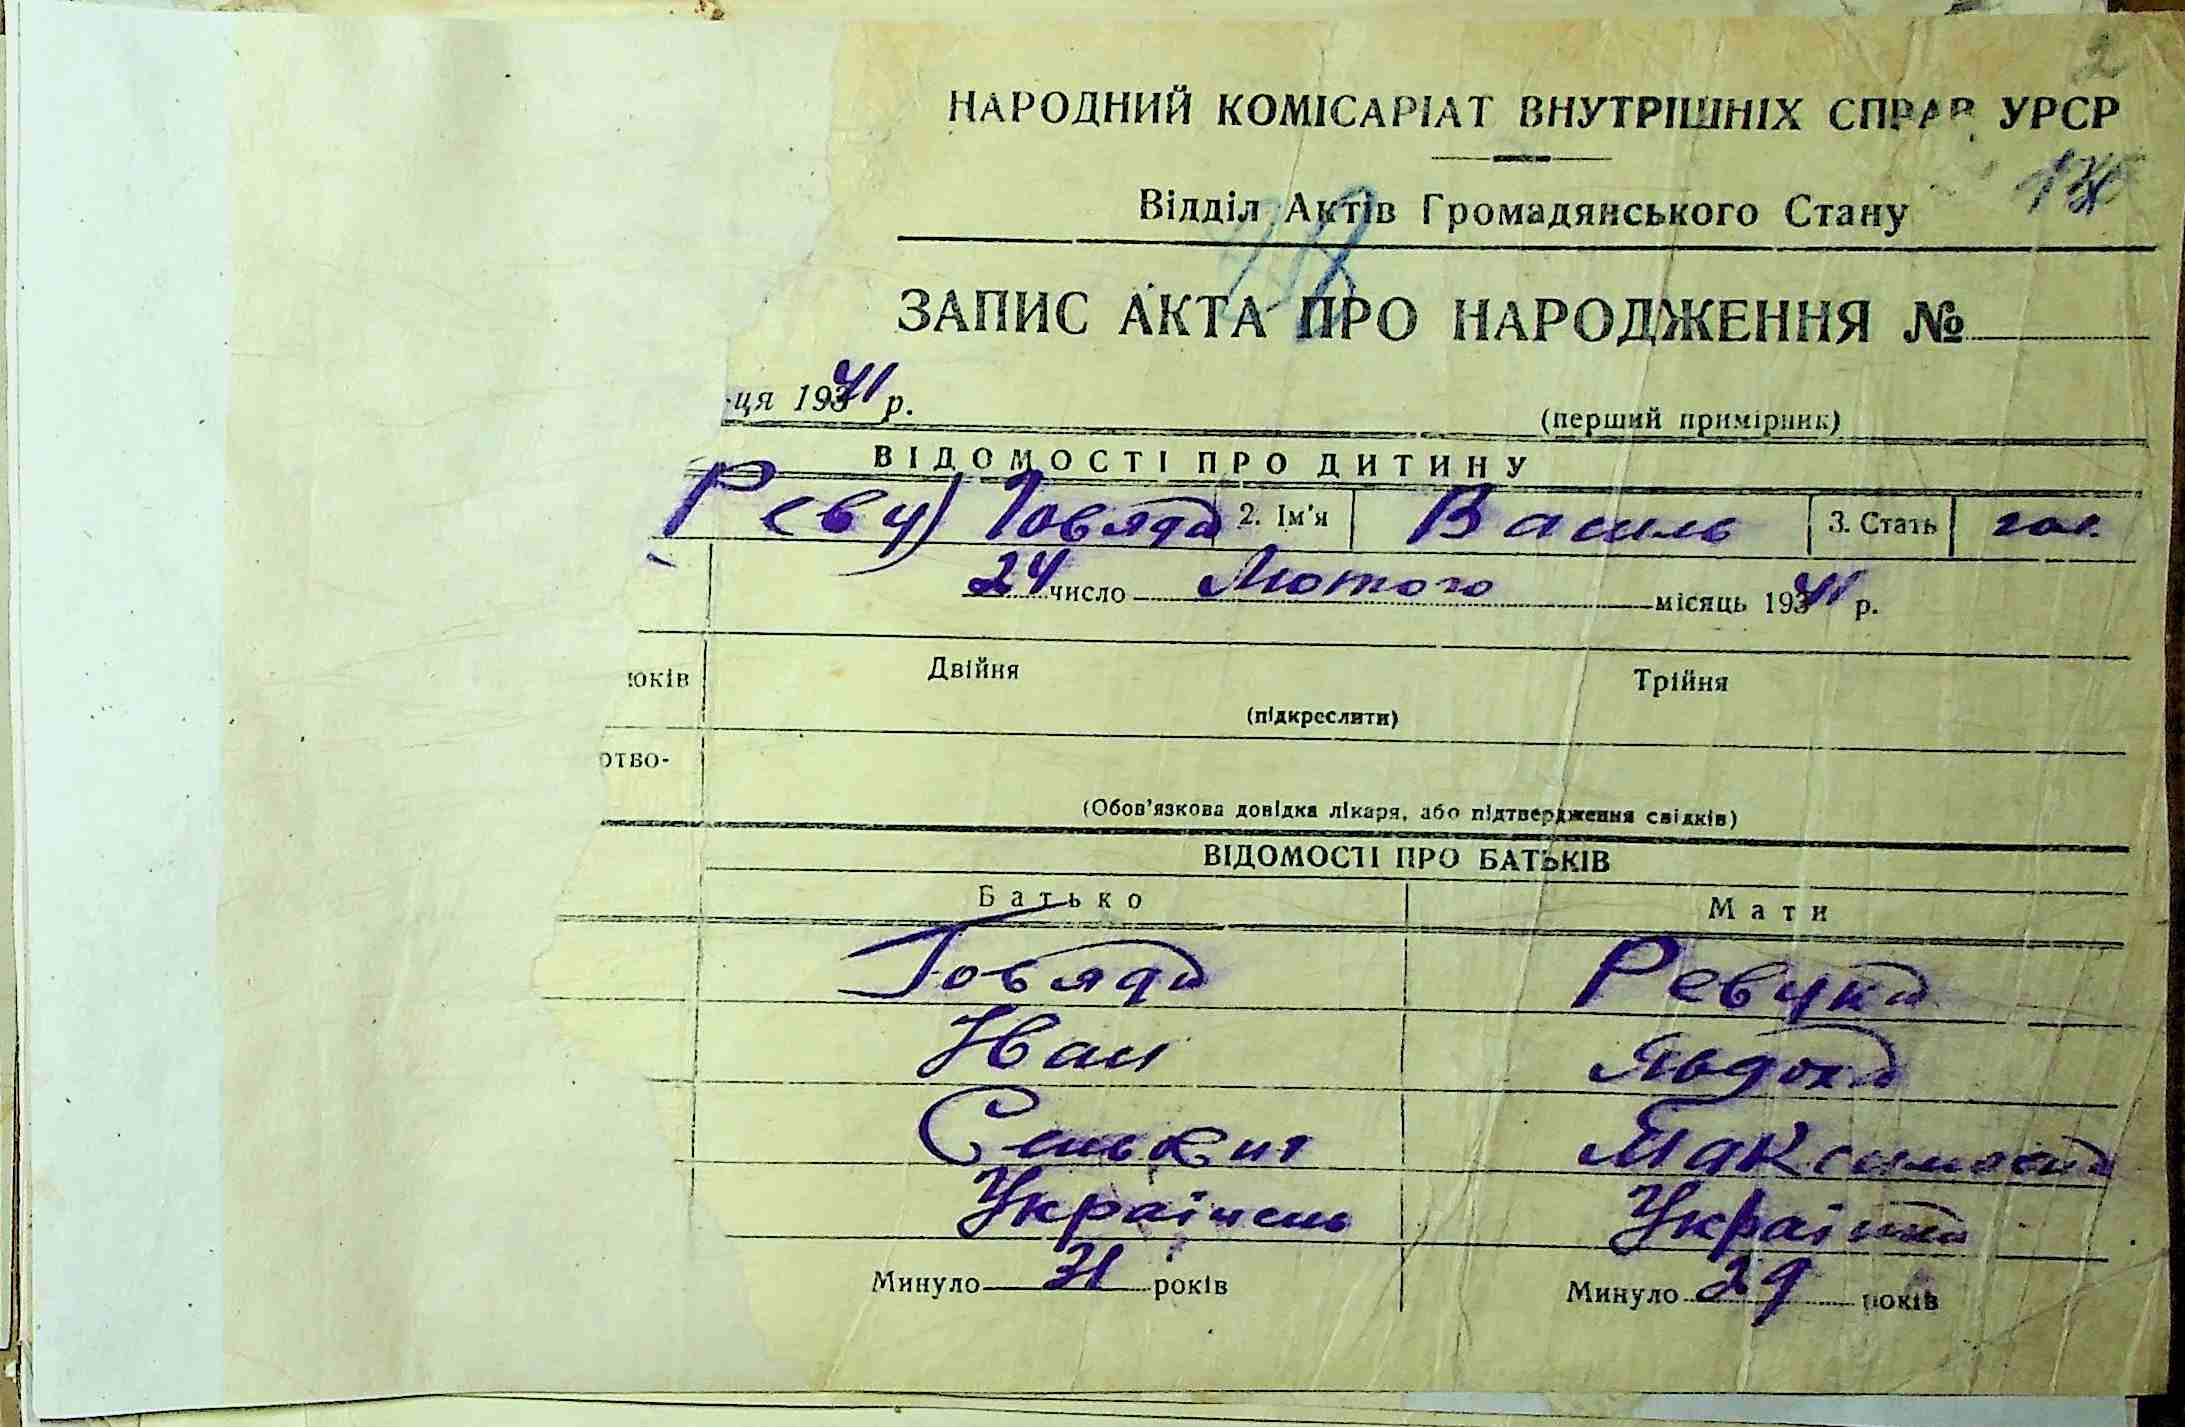 2
НАРОДНИЙ КОМІСАРІАТ ВНУТРІШНІХ СПРАВ УРСР
Відділ Актів Громадянського Стану
ЗАПИС АКТА ПРО НАРОДЖЕННЯ №
ця 1941 р.
(перший примірник)
ВІДОМОСТІ ПРО ДИТИНУ
Реву) Говяда 2. Ім'я Василь 3. Стать чол.
24 число Лютого місяць 1941 р.
юків Двійня Трійня
(підкреслити)
отво-
(Обов'язкова довідка лікаря, або підтвердження свідків)
ВІДОМОСТІ ПРО БАТЬКІВ
Батько Мати
Говяда Ревука
Иван Явдоха
Максимовна
Українець Українка
Минуло 31 років Минуло 29 років